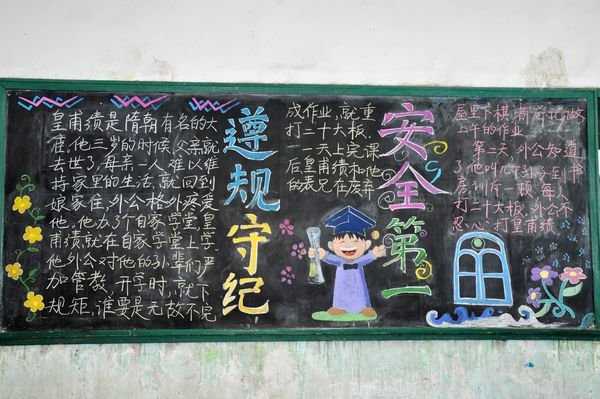 皇甫绩是隋朝有名的大
臣。他三岁的时候,父亲就
去世了,母亲一人难以维
持家里的生活,就回到
娘家住。外公格外疼爱
他。他办了个自家学堂,皇
甫绩就在自家学堂上学。
他外公对他的孙辈们严
加管教,开学时,就下
规矩,谁要是无故不完
遵规守纪
成作业,就重
打二十大板。
一天上完课
后皇甫绩和他
的表兄在废弃
安全第一
屋里下棋,
上午的作业。
第二天,外公知道
打二十大板。外公不
忍心打皇甫绩